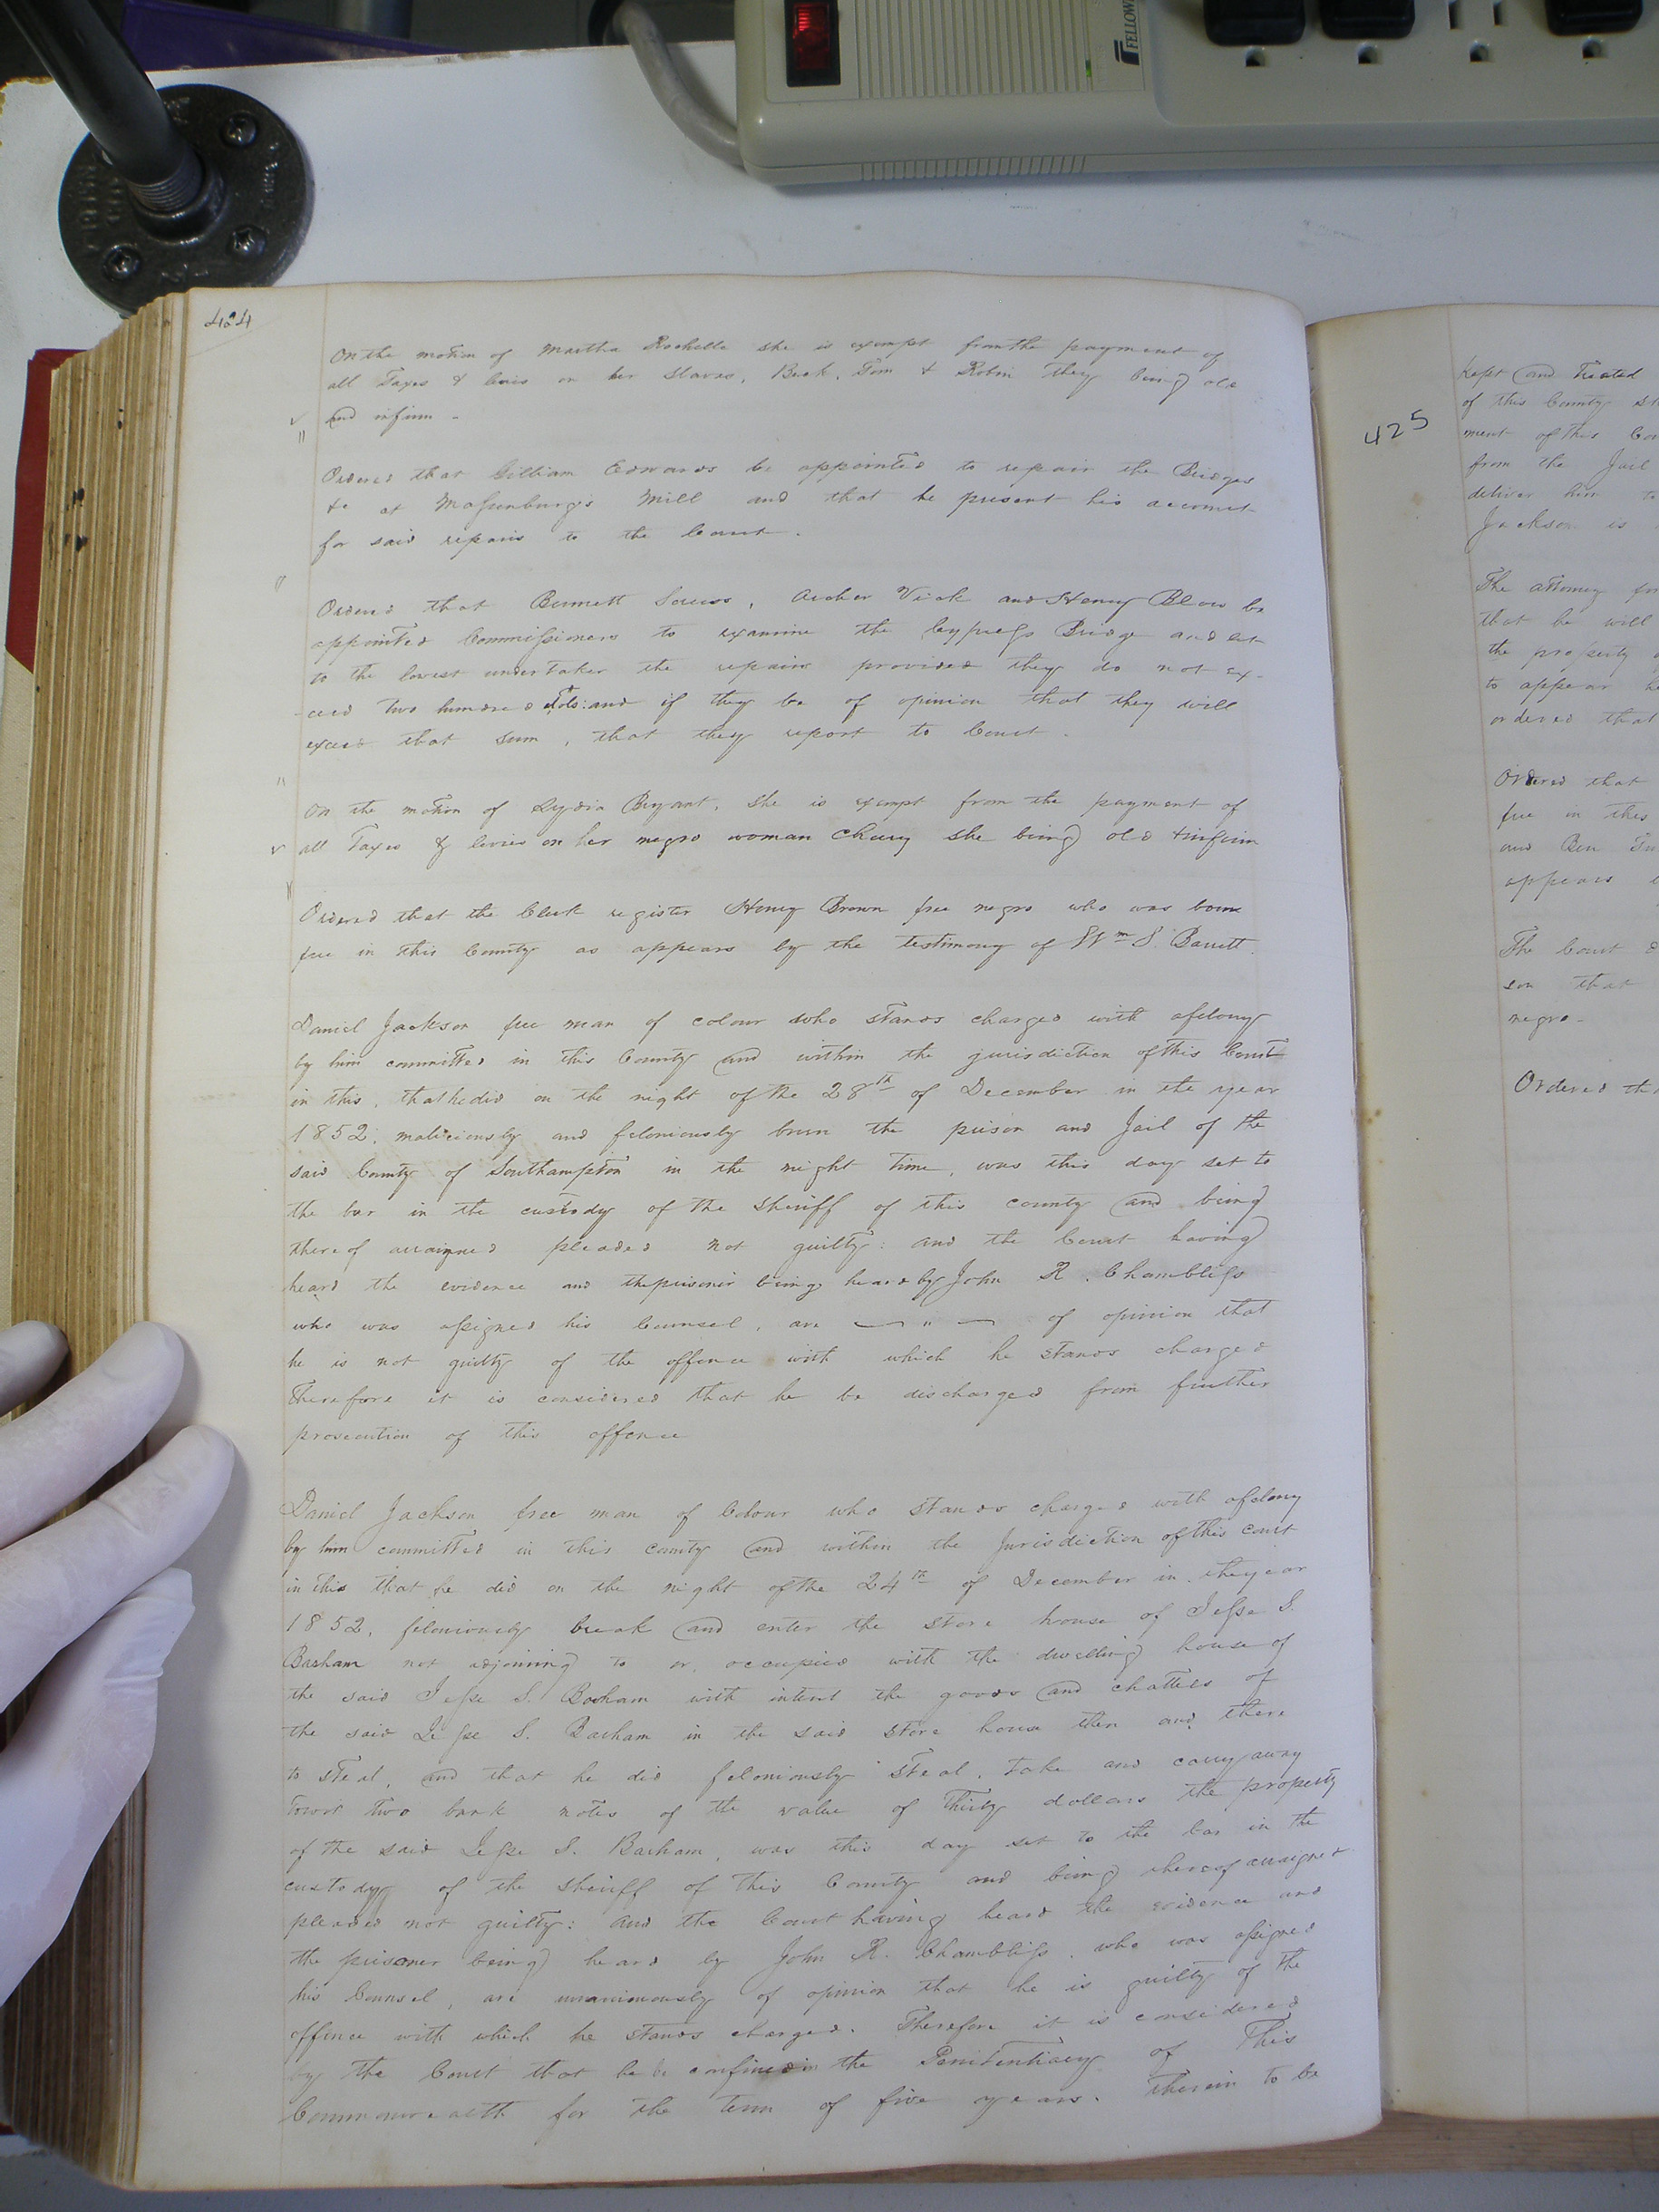 FELLOW
424
On the motion of Martha Rochelle she is exempt from the payment of
all Taxes & levies on her slaves, Buck, Tom & Robin they being old
and infirm -
Ordered that Gilliam Edwards be appointed to repair the Bridges
&c at Massenburg's Mill and that he present his account
for said repairs to the Court.
Ordered that Bennett , Archer Vick and Henry Blow be
appointed Commissioners to examine the Cypress Bridge and let
to the lowest undertaker the repairs provided they do not ex-
-ceed two hundred dols: and if they be of opinion that they will
exceed that sum, that they report to Court.
On the motion of Lydia Bryant, she is exempt from the payment of
all Taxes & levies on her negro woman Chary she being old & infirm
Ordered that the Clerk register Henry Brown free negro who was born
free in this County as appears by the testimony of Wm S. Barrett.
Daniel Jackson free man of colour who stands charged with a felony
by him committed in this County and within the jurisdiction of this Court
in this, that he did on the night of the 28th of December in the year
1852, maliciously and feloniously burn the prison and Jail of the
said County of Southampton in the night time, was this day set to
the bar in the custody of the Sheriff of this county and being
thereof arraigned pleaded not guilty: and the Court having
heard the evidence and the prisoner being heard by John R. Chambliss
who was assigned his Counsel, are — " — of opinion that
he is not guilty of the offence with which he stands charged
Therefore it is considered that he be discharged from further
prosecution of this offence
Daniel Jackson free man of Colour who stands charged with a felony
by him committed in this county and within the Jurisdiction of this court
in this that he did on the night of the 24th of December in the year
1852, feloniously break and enter the store house of Jesse S.
Barham not adjoining to or occupied with the dwelling house of
the said Jesse S. Barham with intent the goods and chattles of
the said Jesse S. Barham in the said store house then and there
to steal, and that he did feloniously steal, take and carry away
towit two bank notes of the value of Thirty dollars the property
of the said Jesse S. Barham, was this day set to the bar in the
custody of the sheriff of this County and being thereof arraigned
pleaded not guilty: and the Court having heard the evidence and
the prisoner being heard by John R. Chambliss, who was assigned
his Counsel, are unanimously of opinion that he is guilty of the
offence with which he stands charged. Therefore it is considered
by the Court that he be confined in the Penitentiary of This
Commonwealth for the term of five years. Therein to be
425
Kept and Treated
of this County
ment of this
from the Jail
deliver him to
Jackson is
The attorney for
that he will
the property
to appear
ordered that
Ordered that
free in this
and Ben
appears
The Court
son that
negro-
Ordered tha